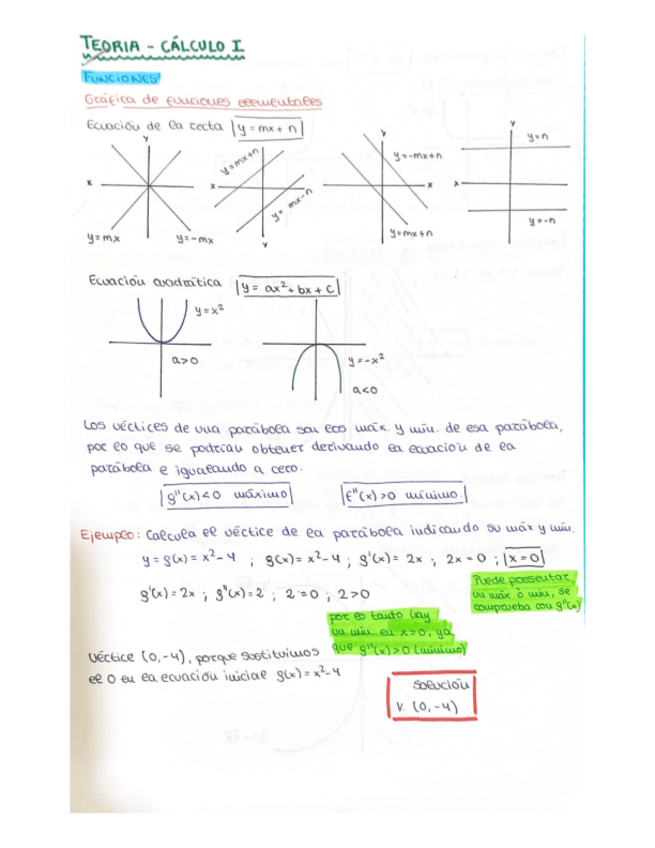 TEORIA - CÁLCULO I
FUNCIONES:
Gráfica de funciones elementales
Ecuación de la recta y = mx + n
y
x
y = mx
y = -mx
x
y = mx+n
y = mx-n
y
y
y = -mx+n
x
y = mx+n
y
y = n
x
y = -n
Ecuación cuadrática y = ax² + bx + c
y = x²
a>0
y = -x²
a<0
Los vértices de una parábola son los máx. y mín. de esa parábola,
por lo que se podrían obtener derivando la ecuación de la
parábola e igualando a cero.
f''(x)<0 máximo
f''(x)>0 mínimo.
Ejemplo: Calcula el vértice de la parábola indicando su máx y mín.
y = f(x) = x²-4 ; f(x) = x²-4 ; f'(x) = 2x ; 2x = 0 ; x = 0
Puede presentar
un máx ó mín, se
comprueba con f''(x)
f'(x) = 2x ; f''(x) = 2 ; 2 = 0 ; 2 > 0
por lo tanto hay
un mín. en x=0, ya
que f''(x)>0 (mínimo)
Vértice (0,-4), porque sustituimos
el 0 en la ecuación inicial f(x) = x²-4
Solución
V. (0,-4)